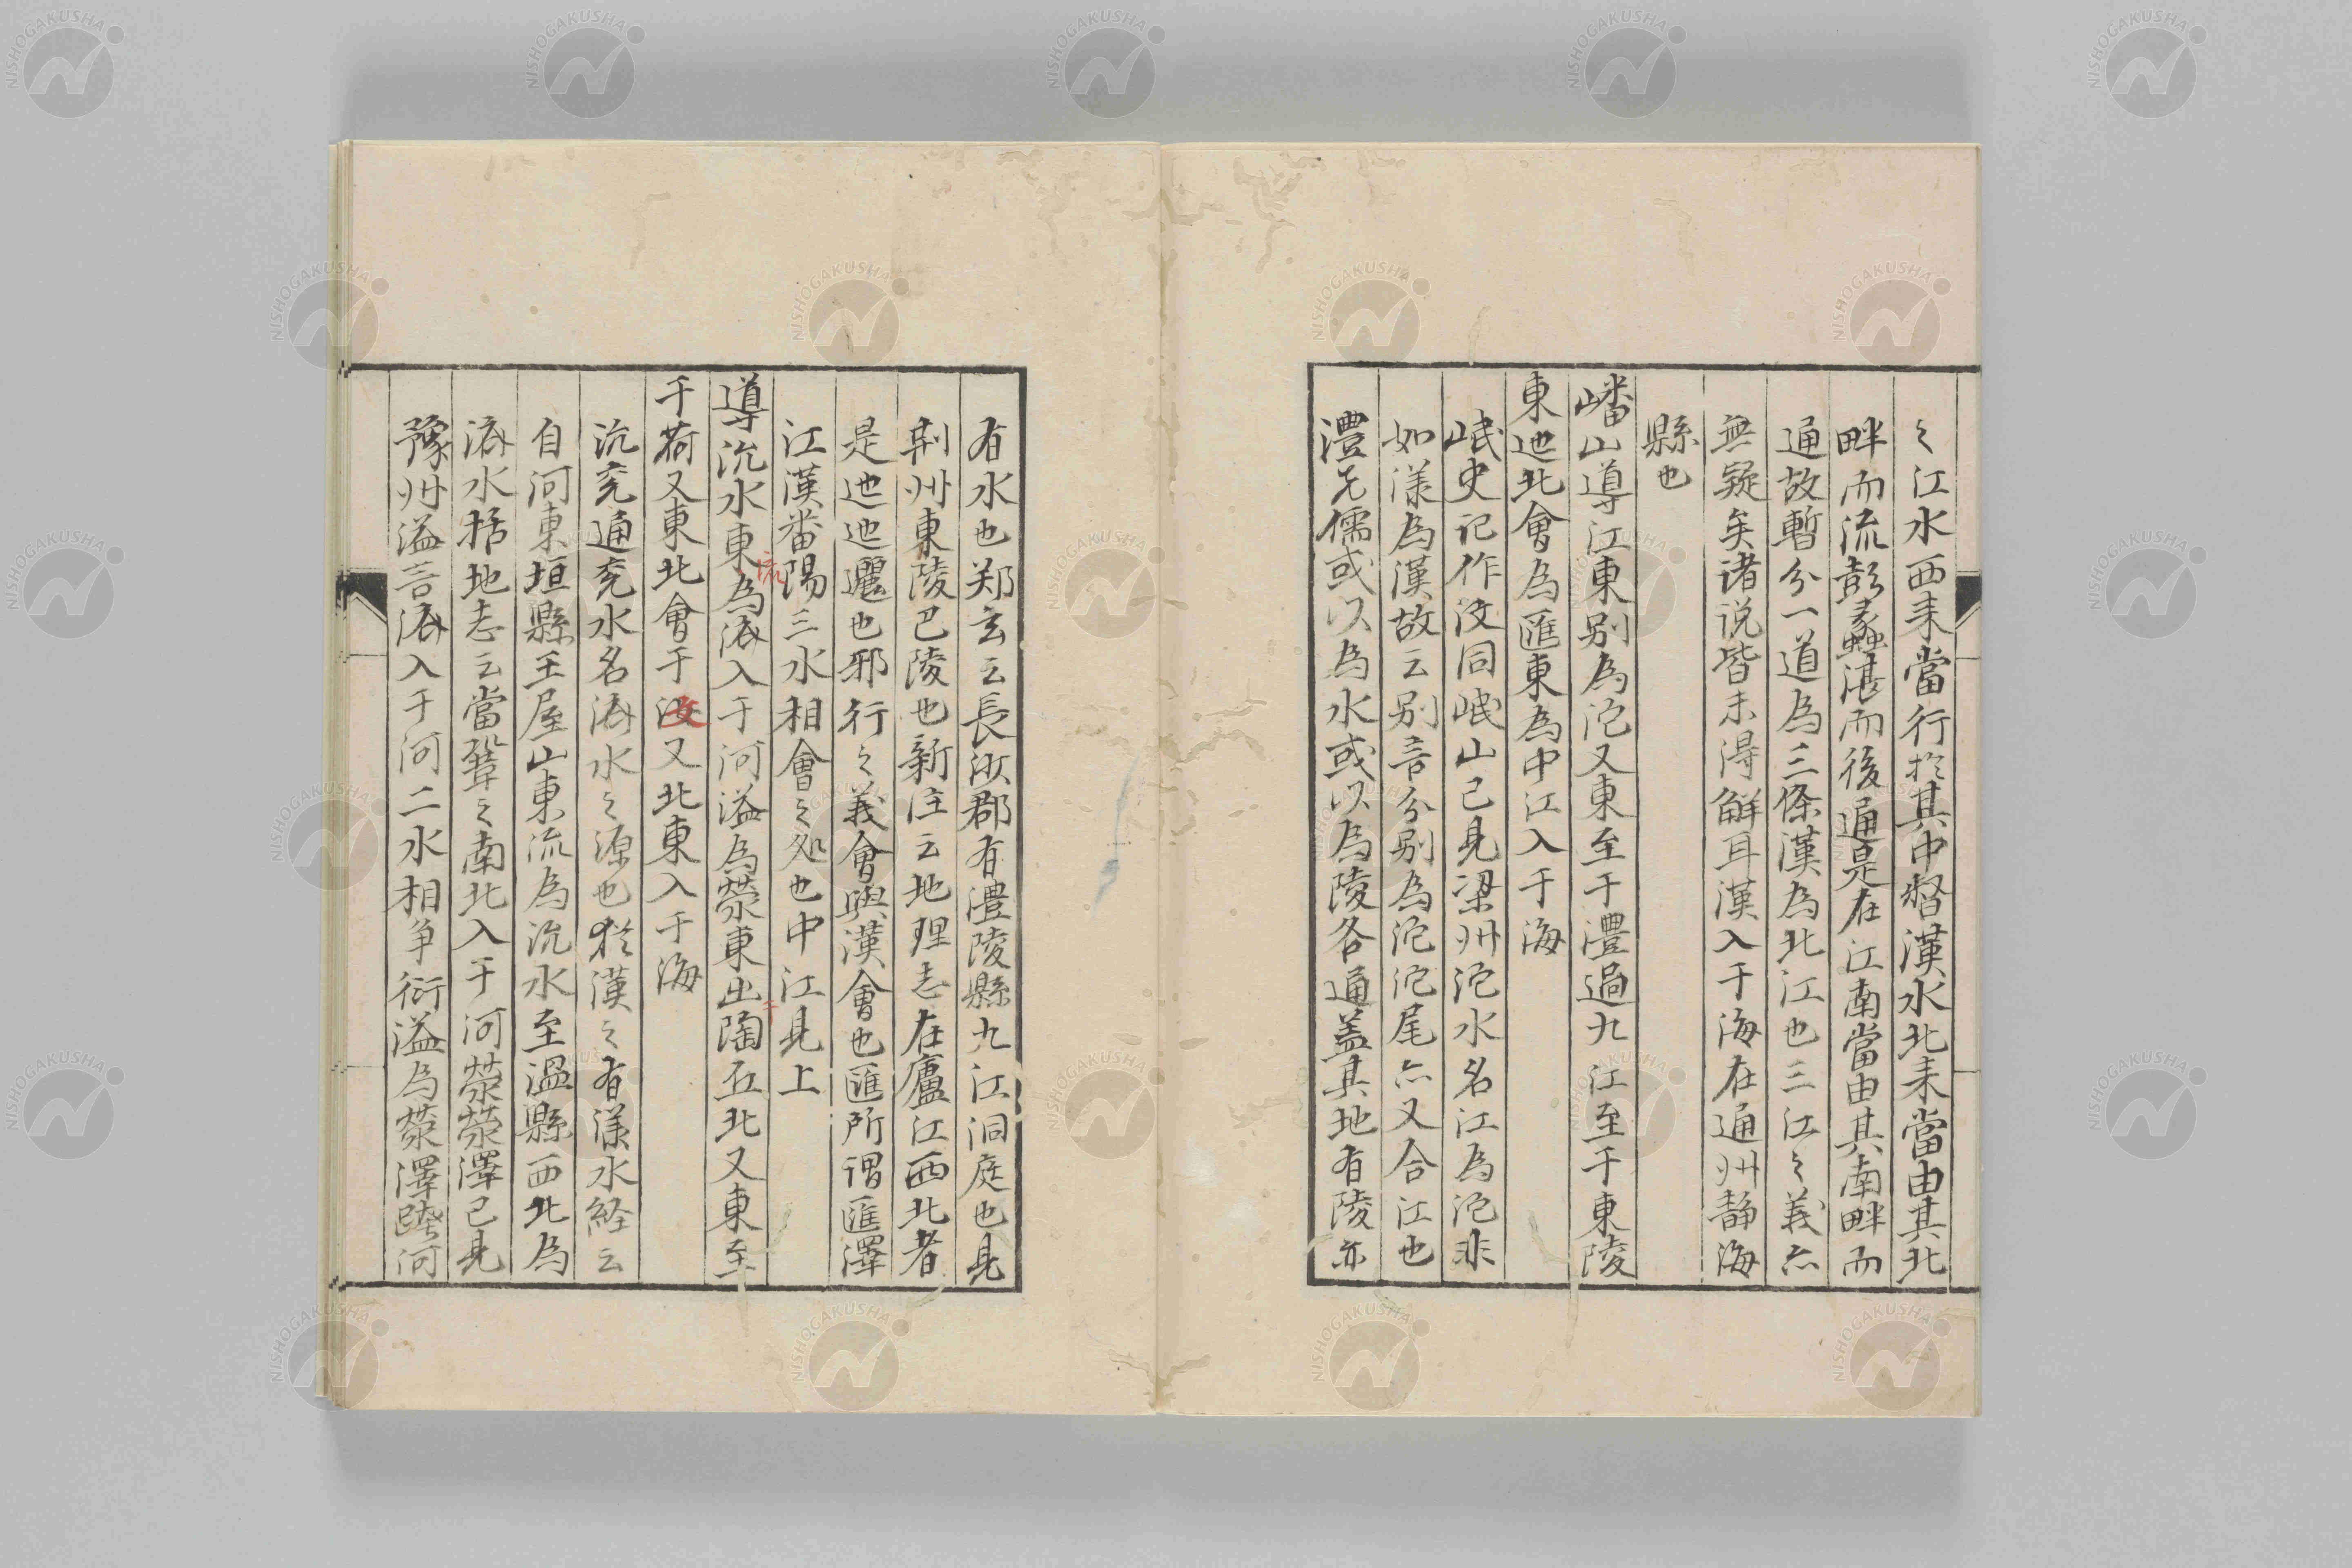 之江水西来當行於其中督漢水北来當由其北
畔而流彭蠡湛而後通是在江南當由其南畔而
通故暫分一道為三條漢為北江也三江之義亦
無疑矣诸说皆未得解耳漢入于海在通州静海
縣也
嶓山導江東别為沱又東至于澧過九江至于東陵
東迆北會為匯東為中江入于海
岷史记作汶同岷山已見梁州沱水名江為沱非
如漾為漢故云别言分别為沱沱尾亦又合江也
澧先儒或以為水或以為陵各通盖其地有陵亦
有水也郑玄云長沙郡有澧陵縣九江洞庭也見
荆州東陵巴陵也新注云地理志在廬江西北者
是迆迆邐也邪行之義會與漢會也匯所谓匯澤
江漢番陽三水相會之処也中江見上
導沇水東流為济入于河溢為荥東出于陶丘北又東至
于荷又東北會于汶又北東入于海
沇兖通兖水名济水之源也犹漢之有漾水経云
自河東垣縣王屋山東流為沇水至温縣西北為
济水括地志云當鞏之南北入于河荥荥澤已見
豫州溢言济入于河二水相争衍溢為荥澤河
NISHOGAKUSHA